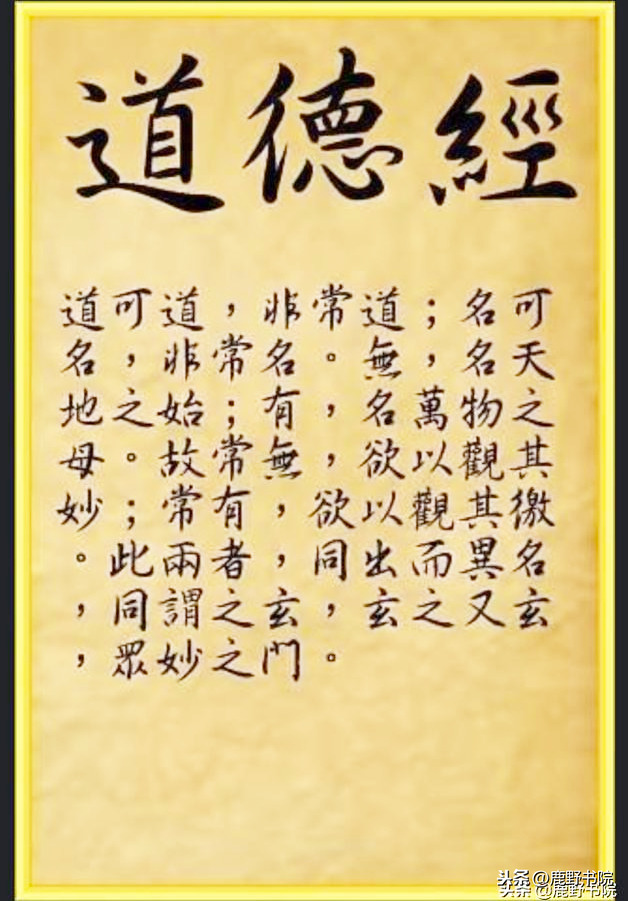 道德經
道可道，非常道；名可
名，非常名。無，名天
地之始；有，名萬物之
母。故常無，欲以觀其
妙；常有，欲以觀其徼
。此兩者，同出而異名
，同謂之玄，玄之又玄
，眾妙之門。
头条 @鹿野书院
头条 @鹿野书院